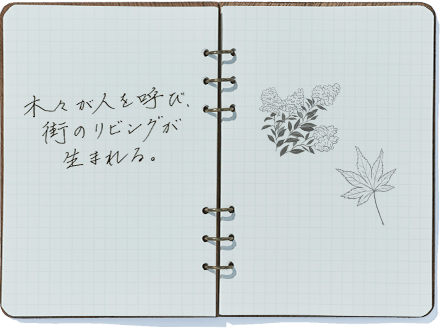 木々が人を呼び、
街のリビングが
生まれる。